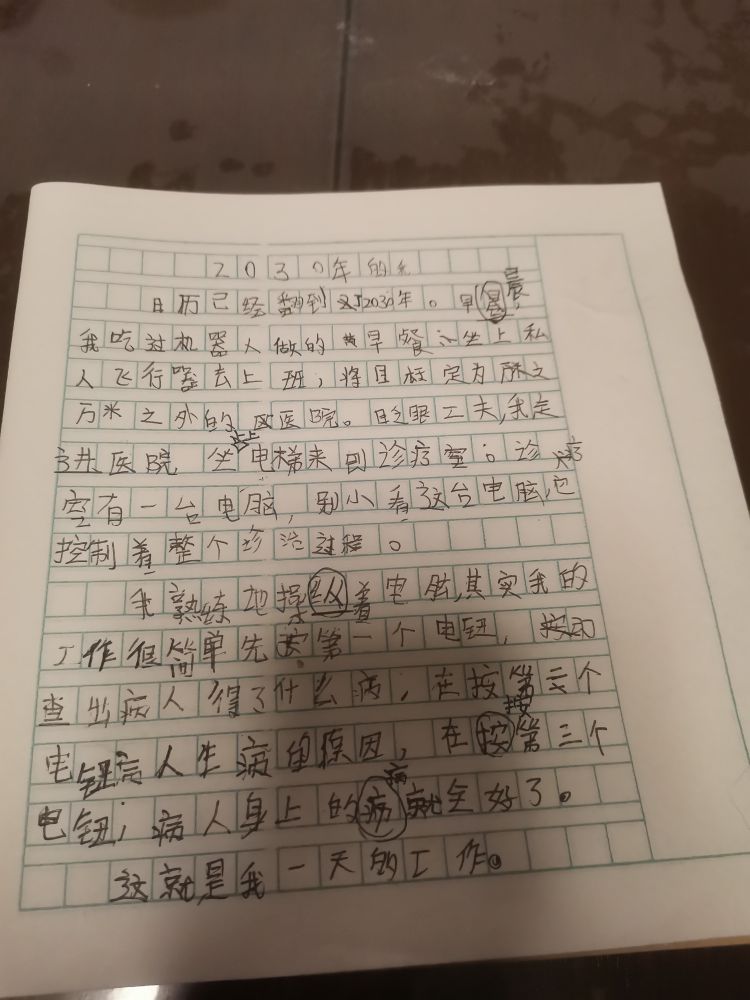 2030年的
晨
日历已经翻到 2030年。早晨,
我吃过机器人做的 早餐,坐上私
人飞行器去上班,将目标定为
万米之外的 医院。眨眼工夫,我走
进医院 坐上电梯来到诊疗室。诊疗
室有一台电脑,别小看这台电脑,它
控制着整个诊治过程。
我熟练地操纵着电脑,其实我的
工作很简单先按第一个电钮,
查出病人得了什么病,在按第二个
按
电钮病人生病的原因,在按第三个
病
电钮,病人身上的病就全好了。
这就是我一天的工作。